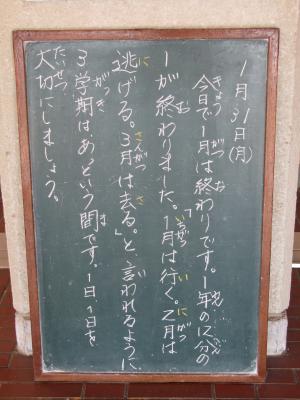 1月31日(月)
今日で1月は終わりです。1年の12分の
1が終わりました。「1月は行く。2月は
逃げる。3月は去る。」と言われるように
3学期はあっという間です。1日、1日を
大切にしましょう。